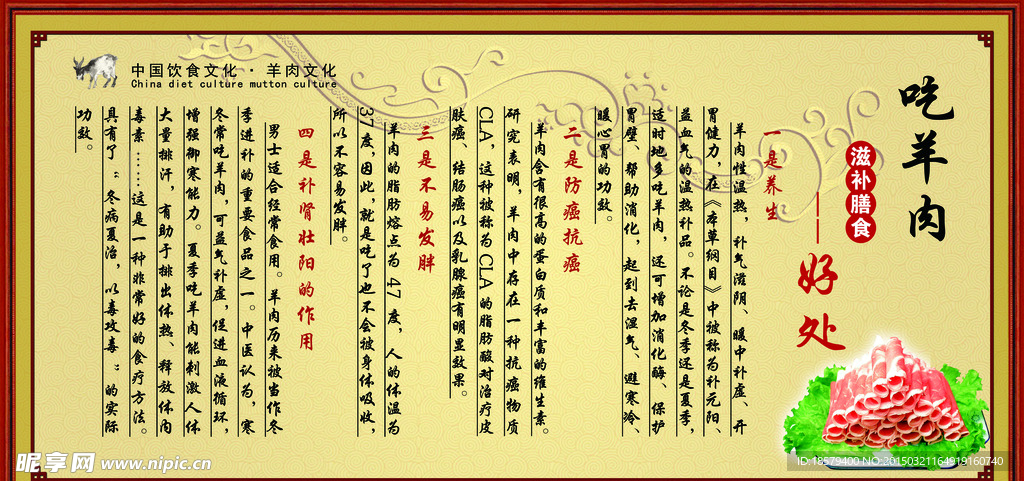 中国饮食文化·羊肉文化
China diet culture mutton culture
吃羊肉
滋补膳食
——好处
一是养生
羊肉性温热，补气滋阴、暖中补虚、开
胃健力，在《本草纲目》中被称为补元阳、
益血气的温热补品。不论是冬季还是夏季，
适时地多吃羊肉，还可增加消化酶、保护
胃壁、帮助消化，起到去湿气、避寒冷、
暖心胃的功效。
二是防癌抗癌
羊肉含有很高的蛋白质和丰富的维生素。
研究表明，羊肉中存在一种抗癌物质
CLA，这种被称为CLA的脂肪酸对治疗皮
肤癌、结肠癌以及乳腺癌有明显效果。
三是不易发胖
羊肉的脂肪熔点为47度，人的体温为
37度，因此，就是吃了也不会被身体吸收，
所以不容易发胖。
四是补肾壮阳的作用
男士适合经常食用。羊肉历来被当作冬
季进补的重要食品之一。中医认为，寒
冬常吃羊肉，可益气补虚，促进血液循环，
增强御寒能力。夏季吃羊肉能刺激人体
大量排汗，有助于排出体热、释放体内
毒素……这是一种非常好的食疗方法。
具有了“冬病夏治，以毒攻毒”的实际
功效。
昵享网 www.nipic.cn
ID:18579400 NO:20150321164919160740